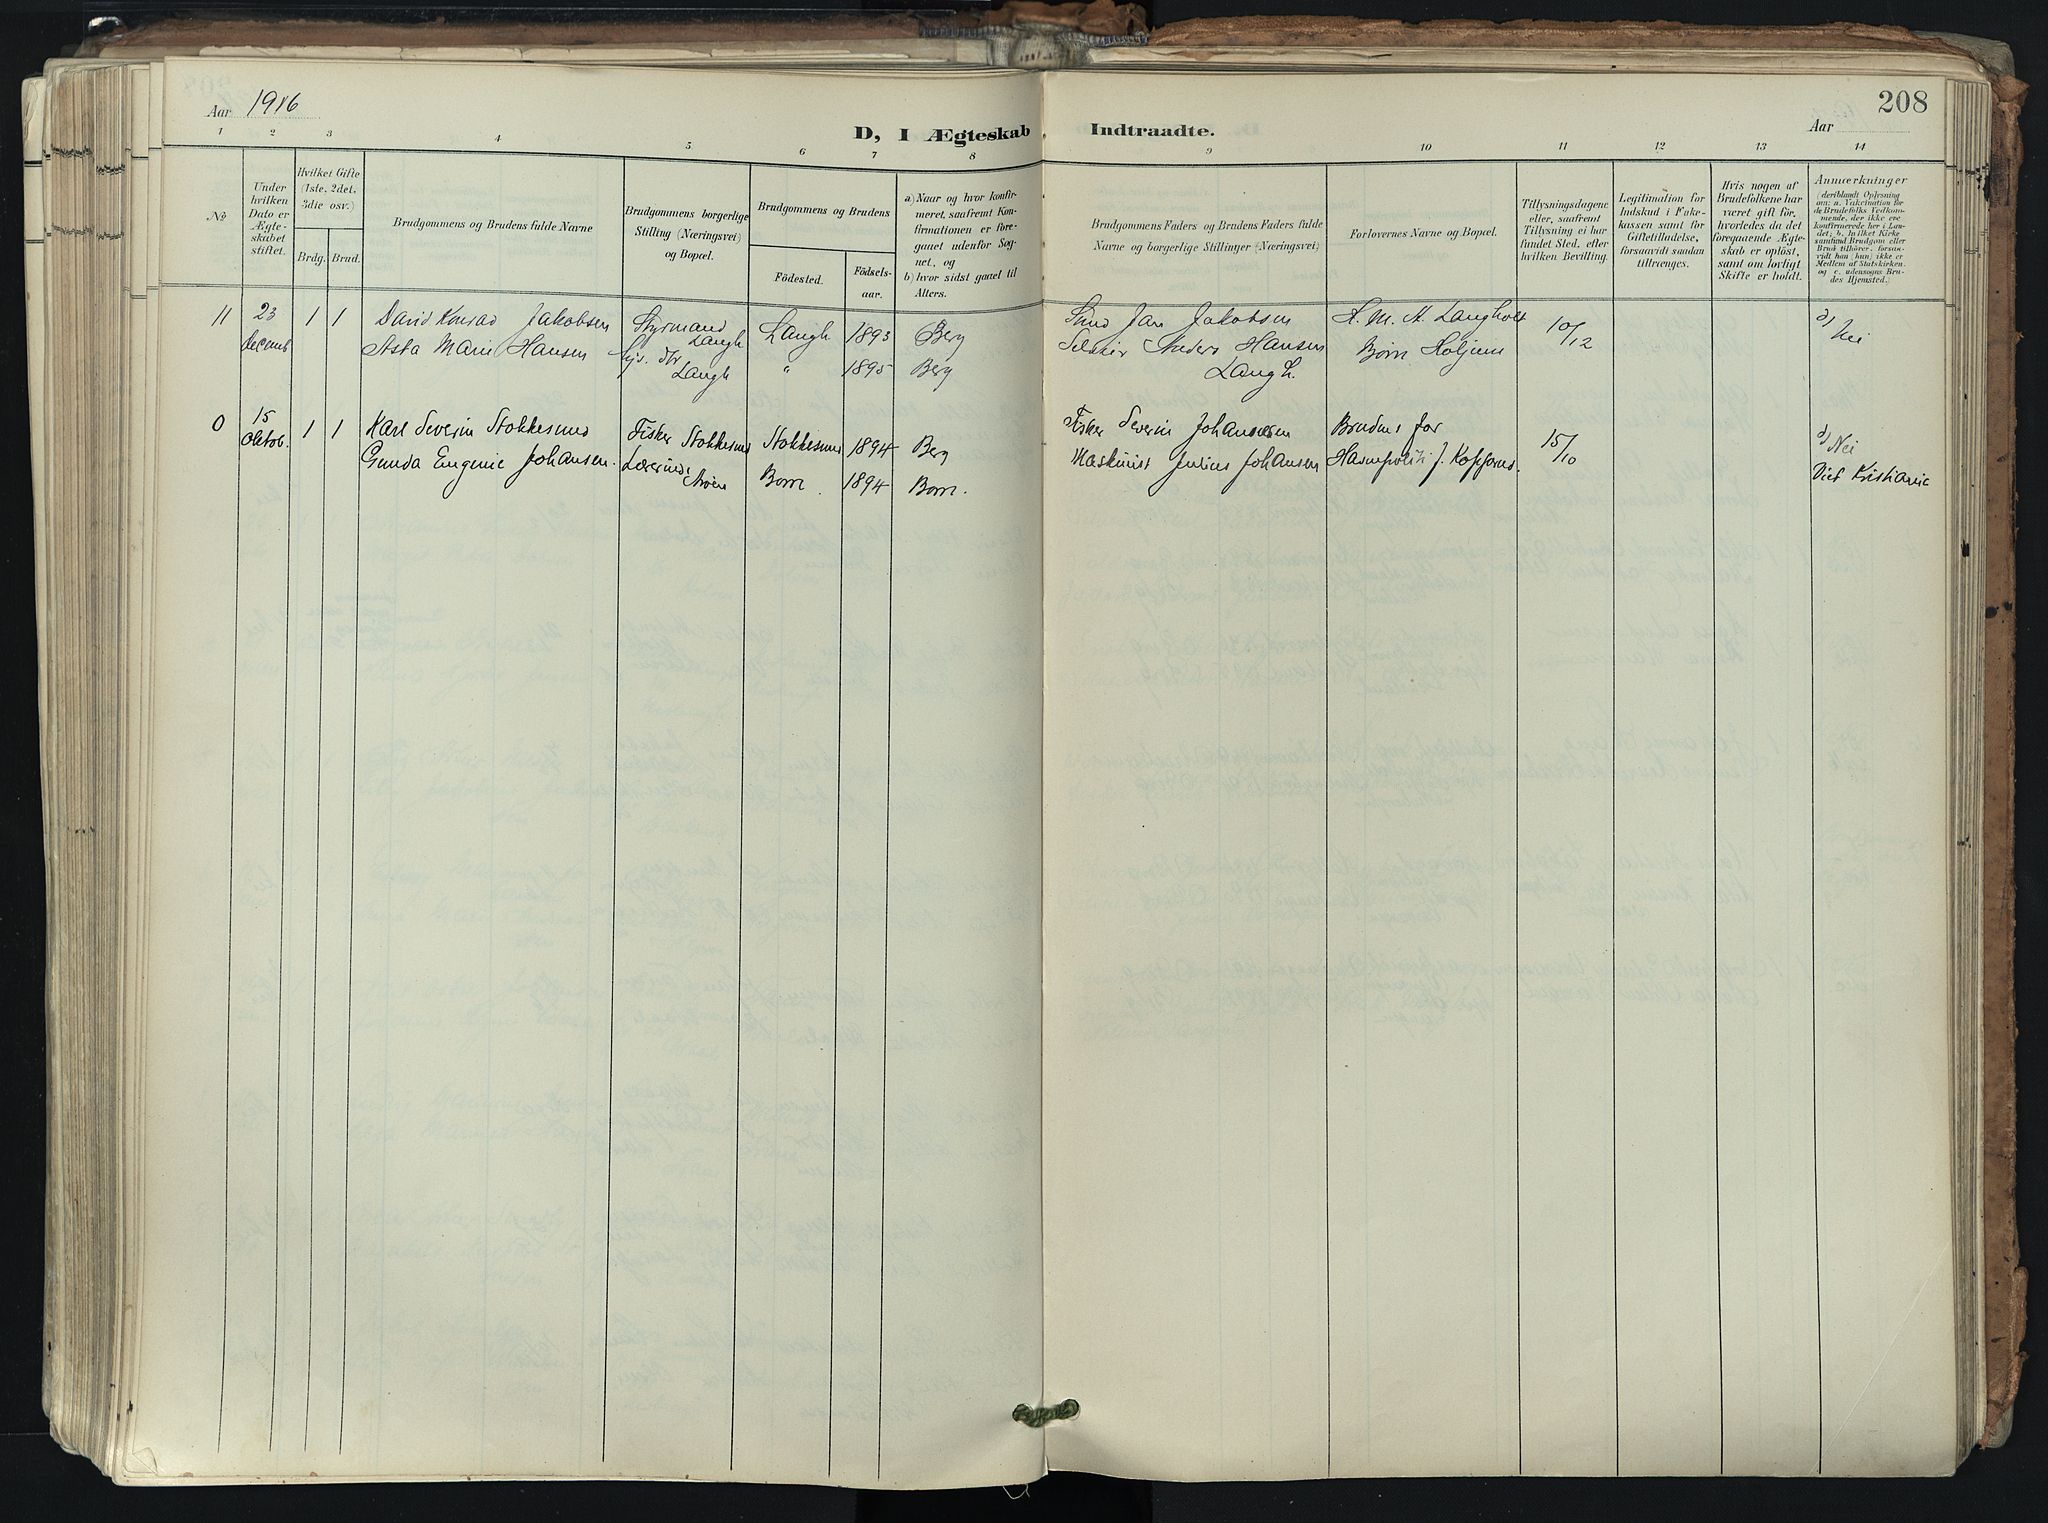 Aar 1916
208
Aar
D, I Ægteskab Indtraadte.
1 2 3 4 5 6 7 8 9 10 11 12 13 14
No
Under hvilken Dato er Ægteskabet stiftet.
Hvilket Gifte (1ste, 2det, 3die osv.)
Brdg. Brud.
Brudgommens og Brudens fulde Navne
Brudgommens borgerlige Stilling (Næringsvei) og Bopæl.
Brudgommens og Brudens
Födested.
Födsels-aar.
a) Naar og hvor konfirmeret, saafremt Konfirmationen er foregaaet udenfor Sognet, og
b) hvor sidst gaaet til Alters.
Brudgommens Faders og Brudens Faders fulde Navne og borgerlige Stillinger (Næringsvei)
Forlovernes Navne og Bopæl.
Tillysningsdagene eller, saafremt Tillysning ei har fundet Sted, efter hvilken Bevilling.
Legitimation for Indskud i Enkekassen samt for Giftetilladelse, forsaavidt saadan tiltrænges.
Hvis nogen af Brudefolkene har været gift för, hvorledes da det foregaaende Ægteskab er oplöst, samt om lovligt Skifte er holdt.
Anmærkninger
(deriblandt Oplysning om: a. Vakcination for de Brudefolks Vedkommende, der ikke ere konfirmerede her i Landet; b. in hvilket Kirkesamfund Brudgom eller Brud tilhörer, forsaavidt han (hun) ikke er Medlem af Statskirken, og c. udensogns Brudes Hjemsted.)
11 23 decemb 1 1 David Konrad Jakobsen Styrmand Langh Langh 1893 Berg Jan Jakobsen A. M. A. Langholt 10/12 Nei
Asta Marie Hansen hjs. dtr Langh " 1895 Berg Anders Hansen Langh.
0 15 Oktob. 1 1 Karl Severin Stokkesund Fisker Stokkesund Stokkesund 1894 Berg Fisker Severin Johansen 15/10 Nei
Gunda Eugenie Johansen. Lærerinde 1894 Maskinist Julius Johansen Viet Kristiania